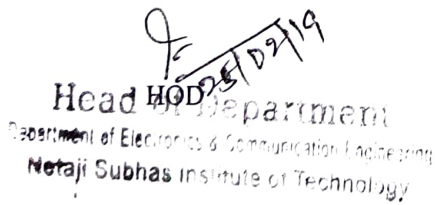 25/02/19
HOD
Head of Department
Department of Electronics & Communication Engineering
Netaji Subhas Institute of Technology